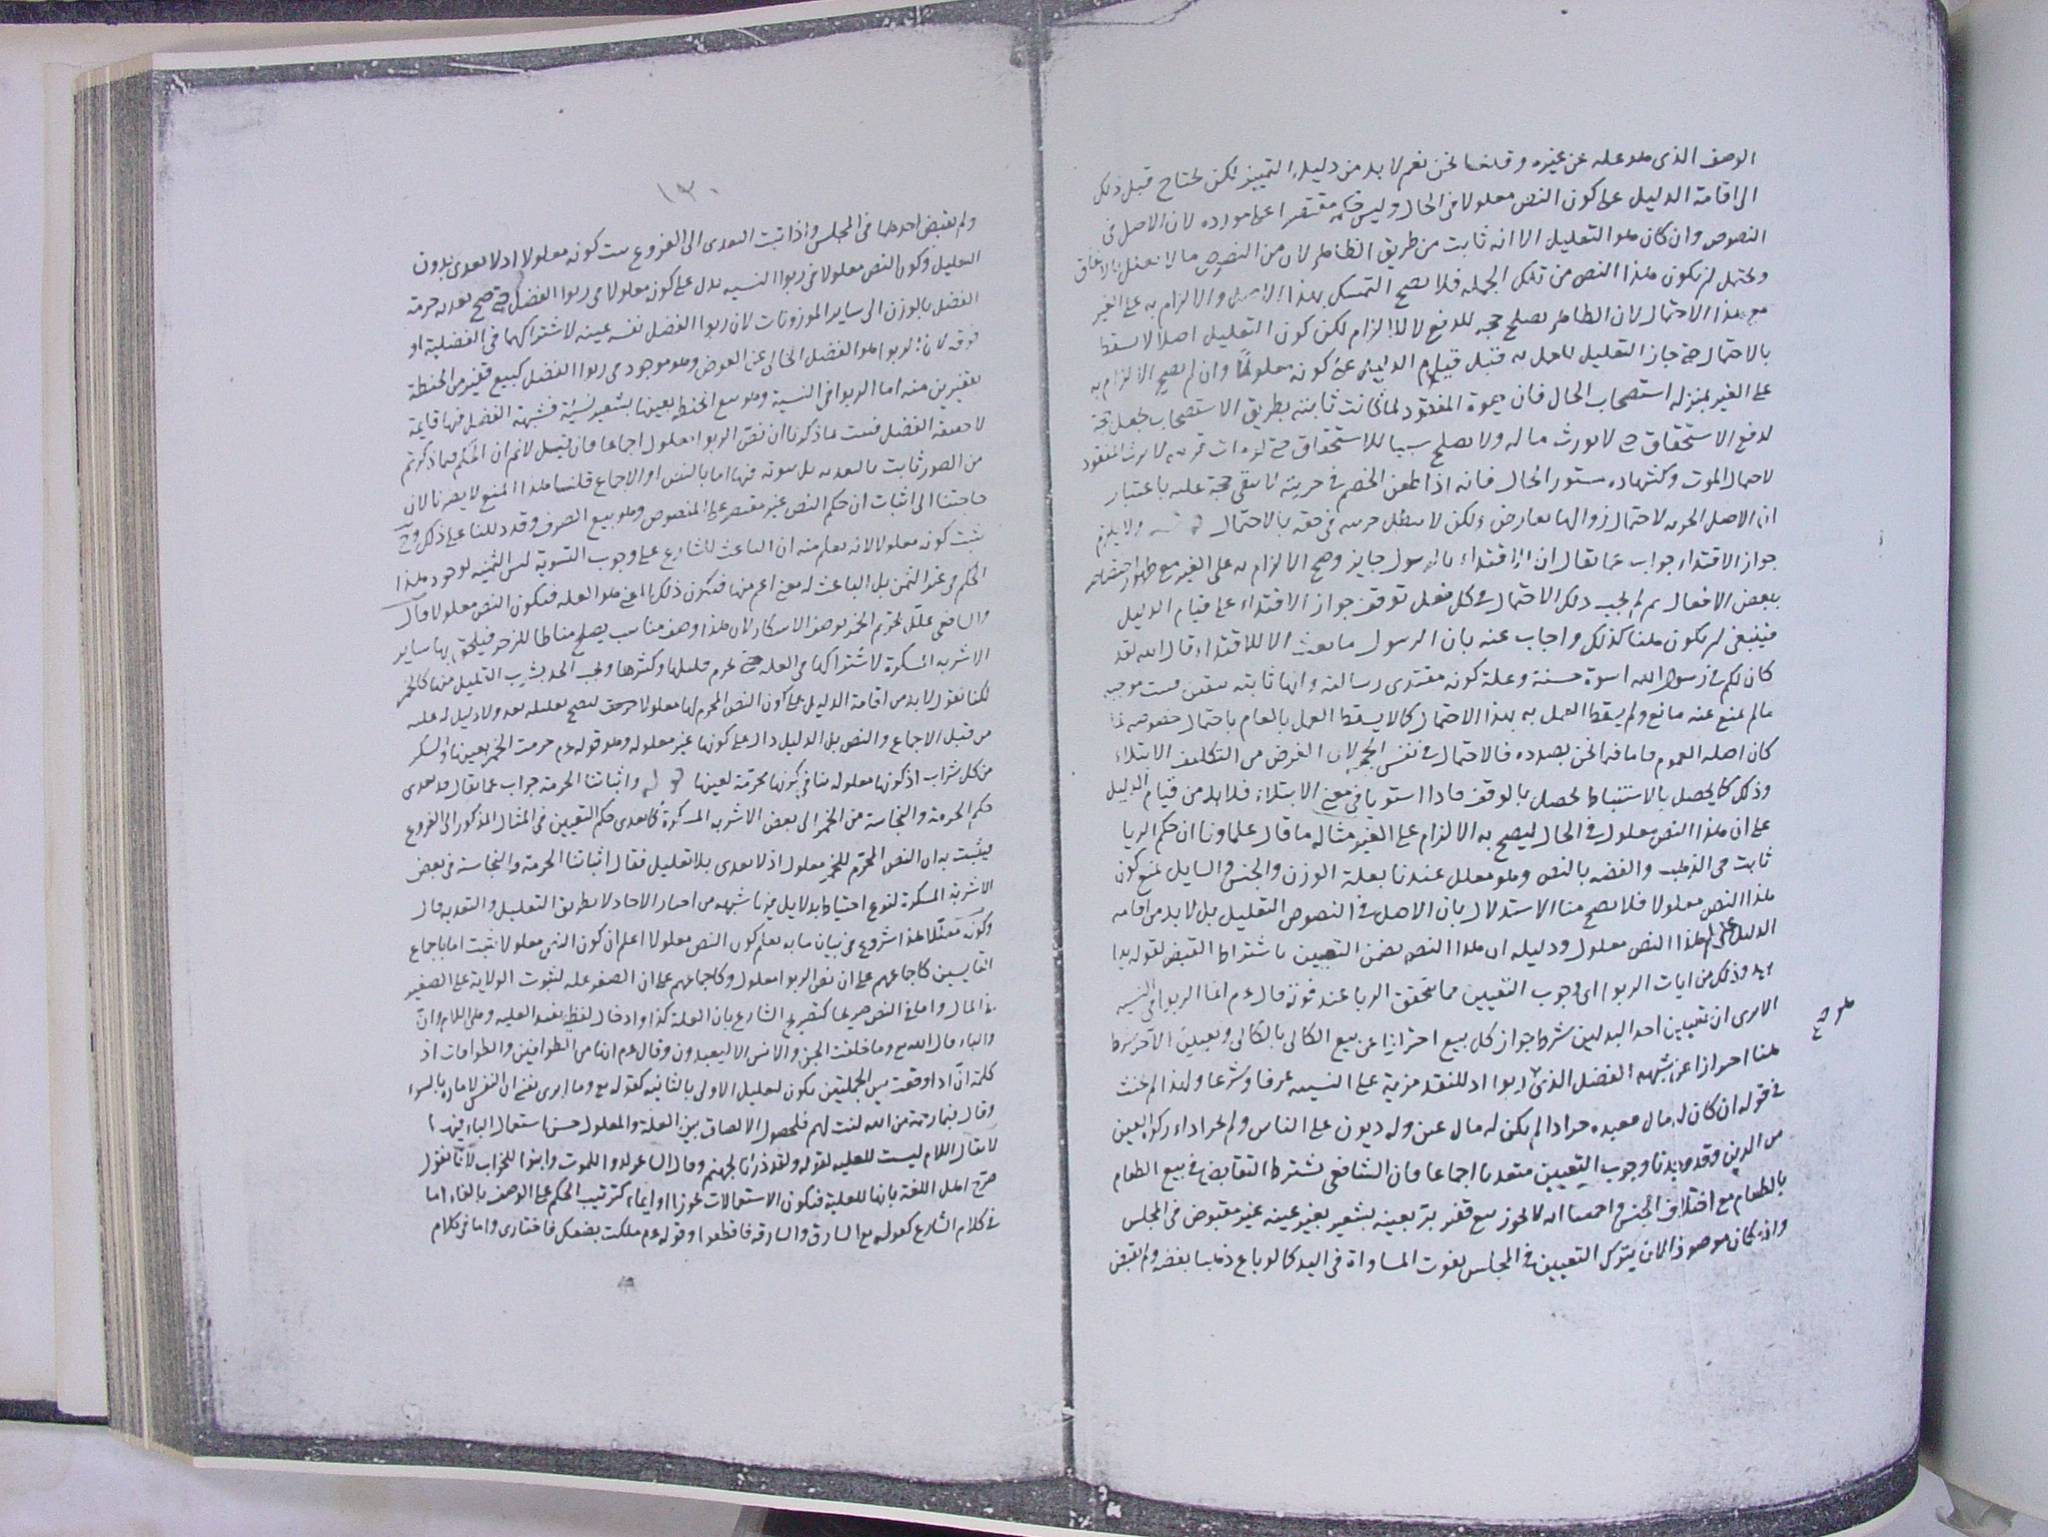 الوصف الذى هو علة عن غيره وقلنا نحن نعم لا بد من دليل التمييز لكن يحتاج قبل ذلك
الى اقامة الدليل على كون النص معلولا فى الحال وليس حكمه مقتصرا على مورده لان الاصل فى
النصوص وان كان هو التعليل الا انه ثابت من طريق الظاهر لان من النصوص ما لا يعلل بالاتفاق
ويحتمل ان يكون هذا النص من تلك الجملة فلا يصح التمسك بهذا الاصل والالزام به على الغير
مع هذا الاحتمال لان الظاهر يصلح حجة للدفع لا للالزام لكن كون التعليل اصلا لا يسقط
بالاحتمال حتى جاز التعليل للعمل به قبل قيام الدليل على كونه معلولا وان لم يصح الالزام به
على الغير بمنزلة استصحاب الحال فان حيوة المفقود لما كانت ثابتة بطريق الاستصحاب جعل حجة
لدفع الاستحقاق حتى لا يورث ماله ولا يصلح سببا للاستحقاق حتى لو مات قريبه لا يرث المفقود
لاحتمال الموت وكشهادة مستور الحال فانه اذا طعن الخصم فى حريته لا يبقى حجة عليه باعتبار
ان الاصل الحرية لاحتمال زوالها بعارض ولكن لا يبطل حريته فى حقه بالاحتمال ولا يلزم
جواز الاقتداء جواب عما يقال ان الاقتداء بالرسول جايز وصح الالزام به على الغير مع ظهور اختصاصه
ببعض الافعال ثم لم يجب ذلك الاحتمال فى كل فعل توقف جواز الاقتداء على قيام الدليل
فينبغى ان يكون هنا كذلك واجاب عنه بان الرسول ما بعث الا للاقتداء قال الله لقد
كان لكم فى رسول الله اسوة حسنة وعلة كونه مقتدى رسالته وانها ثابتة بيقين فيثبت موجبه
ما لم يمنع عنه مانع ولم يسقط العمل به بهذا الاحتمال كما لا يسقط العمل بالعام باحتمال خصوصه لما
كان اصله العموم فاما فيما نحن بصدده فالاحتمال فى نفس الحجة لان الغرض من التكليف الابتلاء
وذلك كما يحصل بالاستنباط يحصل بالوقف فاذا استويا فى معنى الابتلاء فلا بد من قيام الدليل
على ان هذا النص معلول فى الحال ليصح به الالزام على الغير مثاله ما قال علماونا ان حكم الربا
ثابت فى الذهب والفضة بالنص وهو معلل عندنا بعلة الوزن والجنس والسايل يمنع كون
هذا النص معلولا فلا يصح منا الاستدلال بان الاصل فى النصوص التعليل بل لا بد من اقامة
الدليل على ان هذا النص معلول ودليله ان هذا النص يضمن التعيين باشتراط القبض لقوله يدا
بيد وذلك من ايات الربوا اى وجوب التعيين مما يتحقق الربا عند فوته قال ءم انما الربوا فى النسية
الا يرى ان تعيين احد البدلين شرط جواز كل بيع احترازا عن بيع الكالى بالكالى وتعيين الاخر شرط
هنا احترازا عن شبهة الفضل الذى ربوا اذ للنقد مزية على النسية عرفا وشرعا ولهذا لم يحنث
فى قوله ان كان له مال فعبده حر اذا لم يكن له مال عين وله ديون على الناس ولم يجز اداء زكوة العين
من الدين وقد وجدنا وجوب التعيين متعديا اجماعا فان الشافعى شرط التقابض فى بيع الطعام
بالطعام مع اختلاف الجنس واجمعنا انه لا يجوز بيع قفيز بر بعينه بشعير بغير عينه غير مقبوض فى المجلس
واذا كان موصوفا لان بترك التعيين فى المجلس يفوت المساواة فى اليد كما لو باع ذهبا بفضة ولم يقبض
١٣٠
ولم يقبض احدهما فى المجلس واذا ثبت التعدى الى الفروع ثبت كونه معلولا اذ لا تعدى بدون
التعليل وكون النص معلولا فى ربوا النسية يدل على كونه معلولا فى ربوا الفضل حتى صح تعدية حرمة
الفضل بالوزن الى ساير الموزونات لان ربوا الفضل نفسه عينه لاشتراكهما فى الفضلية او
فوقه لان الربوا هو الفضل الخالى عن العوض وهو موجود فى ربوا الفضل كبيع قفيز من الحنطة
بقفيزين منه اما الربوا فى النسية وهو بيع الحنطة بعينها بشعير نسئة فشبهة الفضل فيها قايمة
لا حقيقة الفضل فثبت بما ذكرنا ان نص الربوا معلول اجماعا فان قيل لا نم ان الحكم فيما ذكرتم
من الصور ثابت بالتعدية بل ثبوته فيها اما بالنص او الاجماع قلنا هذا المنع لا يضرنا لان
حاجتنا الى اثبات ان حكم النص غير مقتصر على المنصوص وهو بيع الصرف وقد دللنا على ذلك وح
يثبت كونه معلولا لانه يعلم منه ان الباعث للشارع على وجوب التسوية ليس الثمنية لوجود هذا
الحكم فى غير الثمن بل الباعث له معنى اعم منها فيكون ذلك المعنى هو العلة فيكون النص معلولا قال
والشافعى علل تحريم الخمر بوصف الاسكار لان هذا وصف مناسب يصلح مناطا للزجر فيلحق بها ساير
الاشربة المسكرة لاشتراكها فى العلة حتى يحرم قليلها وكثيرها ويجب الحد بشرب القليل منها كالخمر
لكنا نقول لا بد من اقامة الدليل على كون النص المحرم لها معلولا حتى يصح تعليله بعد ولا دليل له عليه
من قبل الاجماع والنص بل الدليل دال على كونها غير معلولة وهو قوله ءم حرمت الخمر بعينها والسكر
من كل شراب اذ كونها معلولة ينافى كونها محرمة لعينها واثباتنا الحرمة جواب عما يقال قد تعدى
حكم الحرمة والنجاسة من الخمر الى بعض الاشربة المسكرة كما تعدى حكم التعيين فى المثال المذكور الى الفروع
فيثبت به ان النص المحرم للخمر معلول اذ لا تعدى بلا تعليل فقال اثباتنا الحرمة والنجاسة فى بعض
الاشربة المسكرة لنوع احتياط بدلايل فيها شبهة من اخبار الاحاد لا بطريق التعليل والتعدية قال
وكونه معللا هذا شروع فى بيان ما به يعلم كون النص معلولا اعلم ان كون النص معلولا يثبت اما باجماع
القايسين كاجماعهم على ان نص الربوا معلول وكاجماعهم على ان الصغر علة لثبوت الولاية على الصغير
فى المال واما فى النص صريحا كتصريح الشارع بان العلة كذا او ادخال لفظ يفيد العلية وهى اللام وان
والباء قال الله تع وما خلقت الجن والانس الا ليعبدون وقال ءم انها من الطوافين والطوافات اذ
كلمة ان اذا وقعت بين الجملتين يكون لتعليل الاولى بالثانية كقوله تع وما ابرى نفسى ان النفس لامارة بالسوء
وقال فبما رحمة من الله لنت لهم فلحصول الالصاق بين العلة والمعلول حسن استعمال الباء فيهما
لا يقال اللام ليست للعلية لقوله ولقد ذرانا لجهنم وقال الشاعر لدوا للموت وابنوا للخراب لانا نقول
صرح اهل اللغة بانها للعلية فيكون الاستعمالات تجوزا او ايماء كترتيب الحكم على الوصف بالفاء اما
فى كلام الشارع كقوله تع السارق والسارقة فاقطعوا وقوله ءم ملكت بضعك فاختارى واما فى كلام